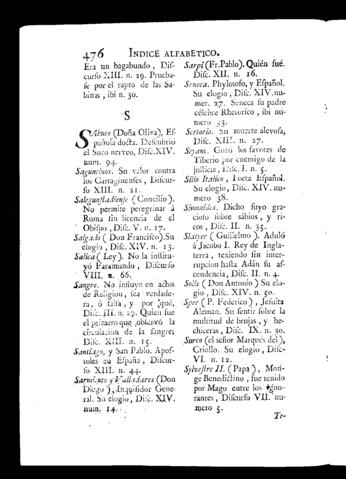 476 INDICE ALFABETICO.
Era un bagabundo, Dis-
curso XIII. n. 29. Prueba-
se por el rapto de las Sa-
binas, ibi n. 30.
S
SAbuco (Doña Oliva), Es-
pañola docta. Descubrió
el Suco nerveo, Disc. XIV.
num. 94.
Saguntinos. Su valor contra
los Cartaginenses, Discur-
so XIII. n. 21.
Salegunstadiense (Concilio).
No permite peregrinar á
Roma sin licencia de el
Obispo, Disc. V. n. 17.
Salgado (Don Francisco). Su
elogio, Disc. XIV. n. 13.
Salica (Ley). No la institu-
yó Faramundo, Discurso
VIII. n. 66.
Sangre. No influyen en actos
de Religion, sea verdade-
ra, ó falsa, y por qué,
Disc. III. n. 29. Quien fue
el primero que observó la
circulacion de la sangre,
Disc. XIII. n. 15.
Santiago, y San Pablo. Apos-
toles en España, Discur-
so XIII. n. 44.
Sarmiento y Valladares (Don
Diego), Inquisidor Gene-
ral. Su elogio, Disc. XIV.
num. 14.
Sarpi (Fr. Pablo). Quién fué.
Disc. XII. n. 16.
Seneca. Phylosofo, y Español.
Su elogio, Disc. XIV. nu-
mer. 27. Seneca su padre
célebre Rhetorico, ibi nu-
mero 33.
Sertorio. Su muerte alevosa,
Disc. XIII. n. 27.
Sejano. Gozó los favores de
Tiberio por enemigo de la
justicia, Disc. I. n. 5.
Silio Italico, Poeta Español.
Su elogio, Disc. XIV. nu-
mero 38.
Simonides. Dicho suyo gra-
cioso sobre sabios, y ri-
cos, Disc. II. n. 35.
Slatyer (Guillelmo). Aduló
á Jacobo I. Rey de Ingla-
terra, texiendo sin inter-
rupcion hasta Adán su as-
cendencia, Disc. II. n. 4.
Solís (Don Antonio) Su elo-
gio, Disc. XIV. n. 50.
Spee (P. Federico), Jesuita
Aleman. Su sentir sobre la
multitud de brujas, y he-
chiceras, Disc. IX. n. 30.
Sureo (el señor Marqués del),
Criollo. Su elogio, Disc.
VI. n. 12.
Sylvestre II. (Papa), Mon-
ge Benedictino, fue tenido
por Mago entre los igno-
rantes, Discurso VII. nu-
mero 5.
Te-